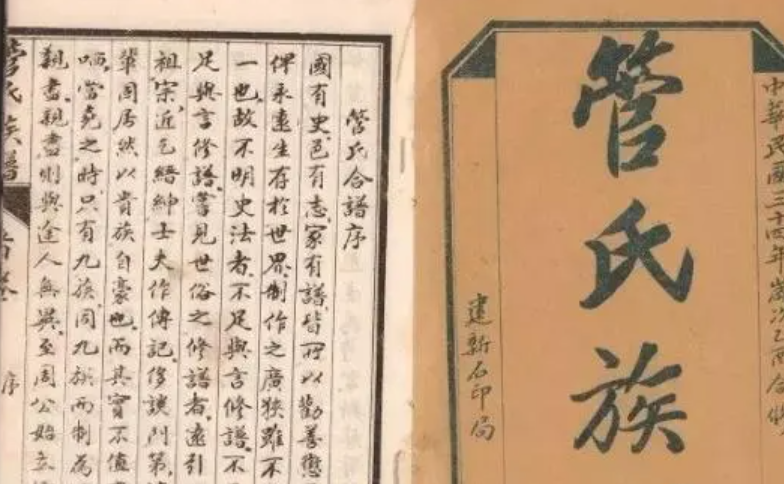 中華民國三十四年歲次乙酉合修
管氏族
建新石印局
管氏合譜序
國有史邑有志家有譜皆所以勸善懲
俾永遠生存於世界制作之廣狹雖不
一也故不明史法者不足與言修譜不
足與言修譜嘗見世俗之修譜者遠引
祖宗近乞縉紳士夫作傳記侈談門第
輩固居然以貴族自豪也而其實不值
哂當堯之時只有九族同九族而制為
親盡親盡則與途人無異至周公始立
管氏族譜
首卷
序